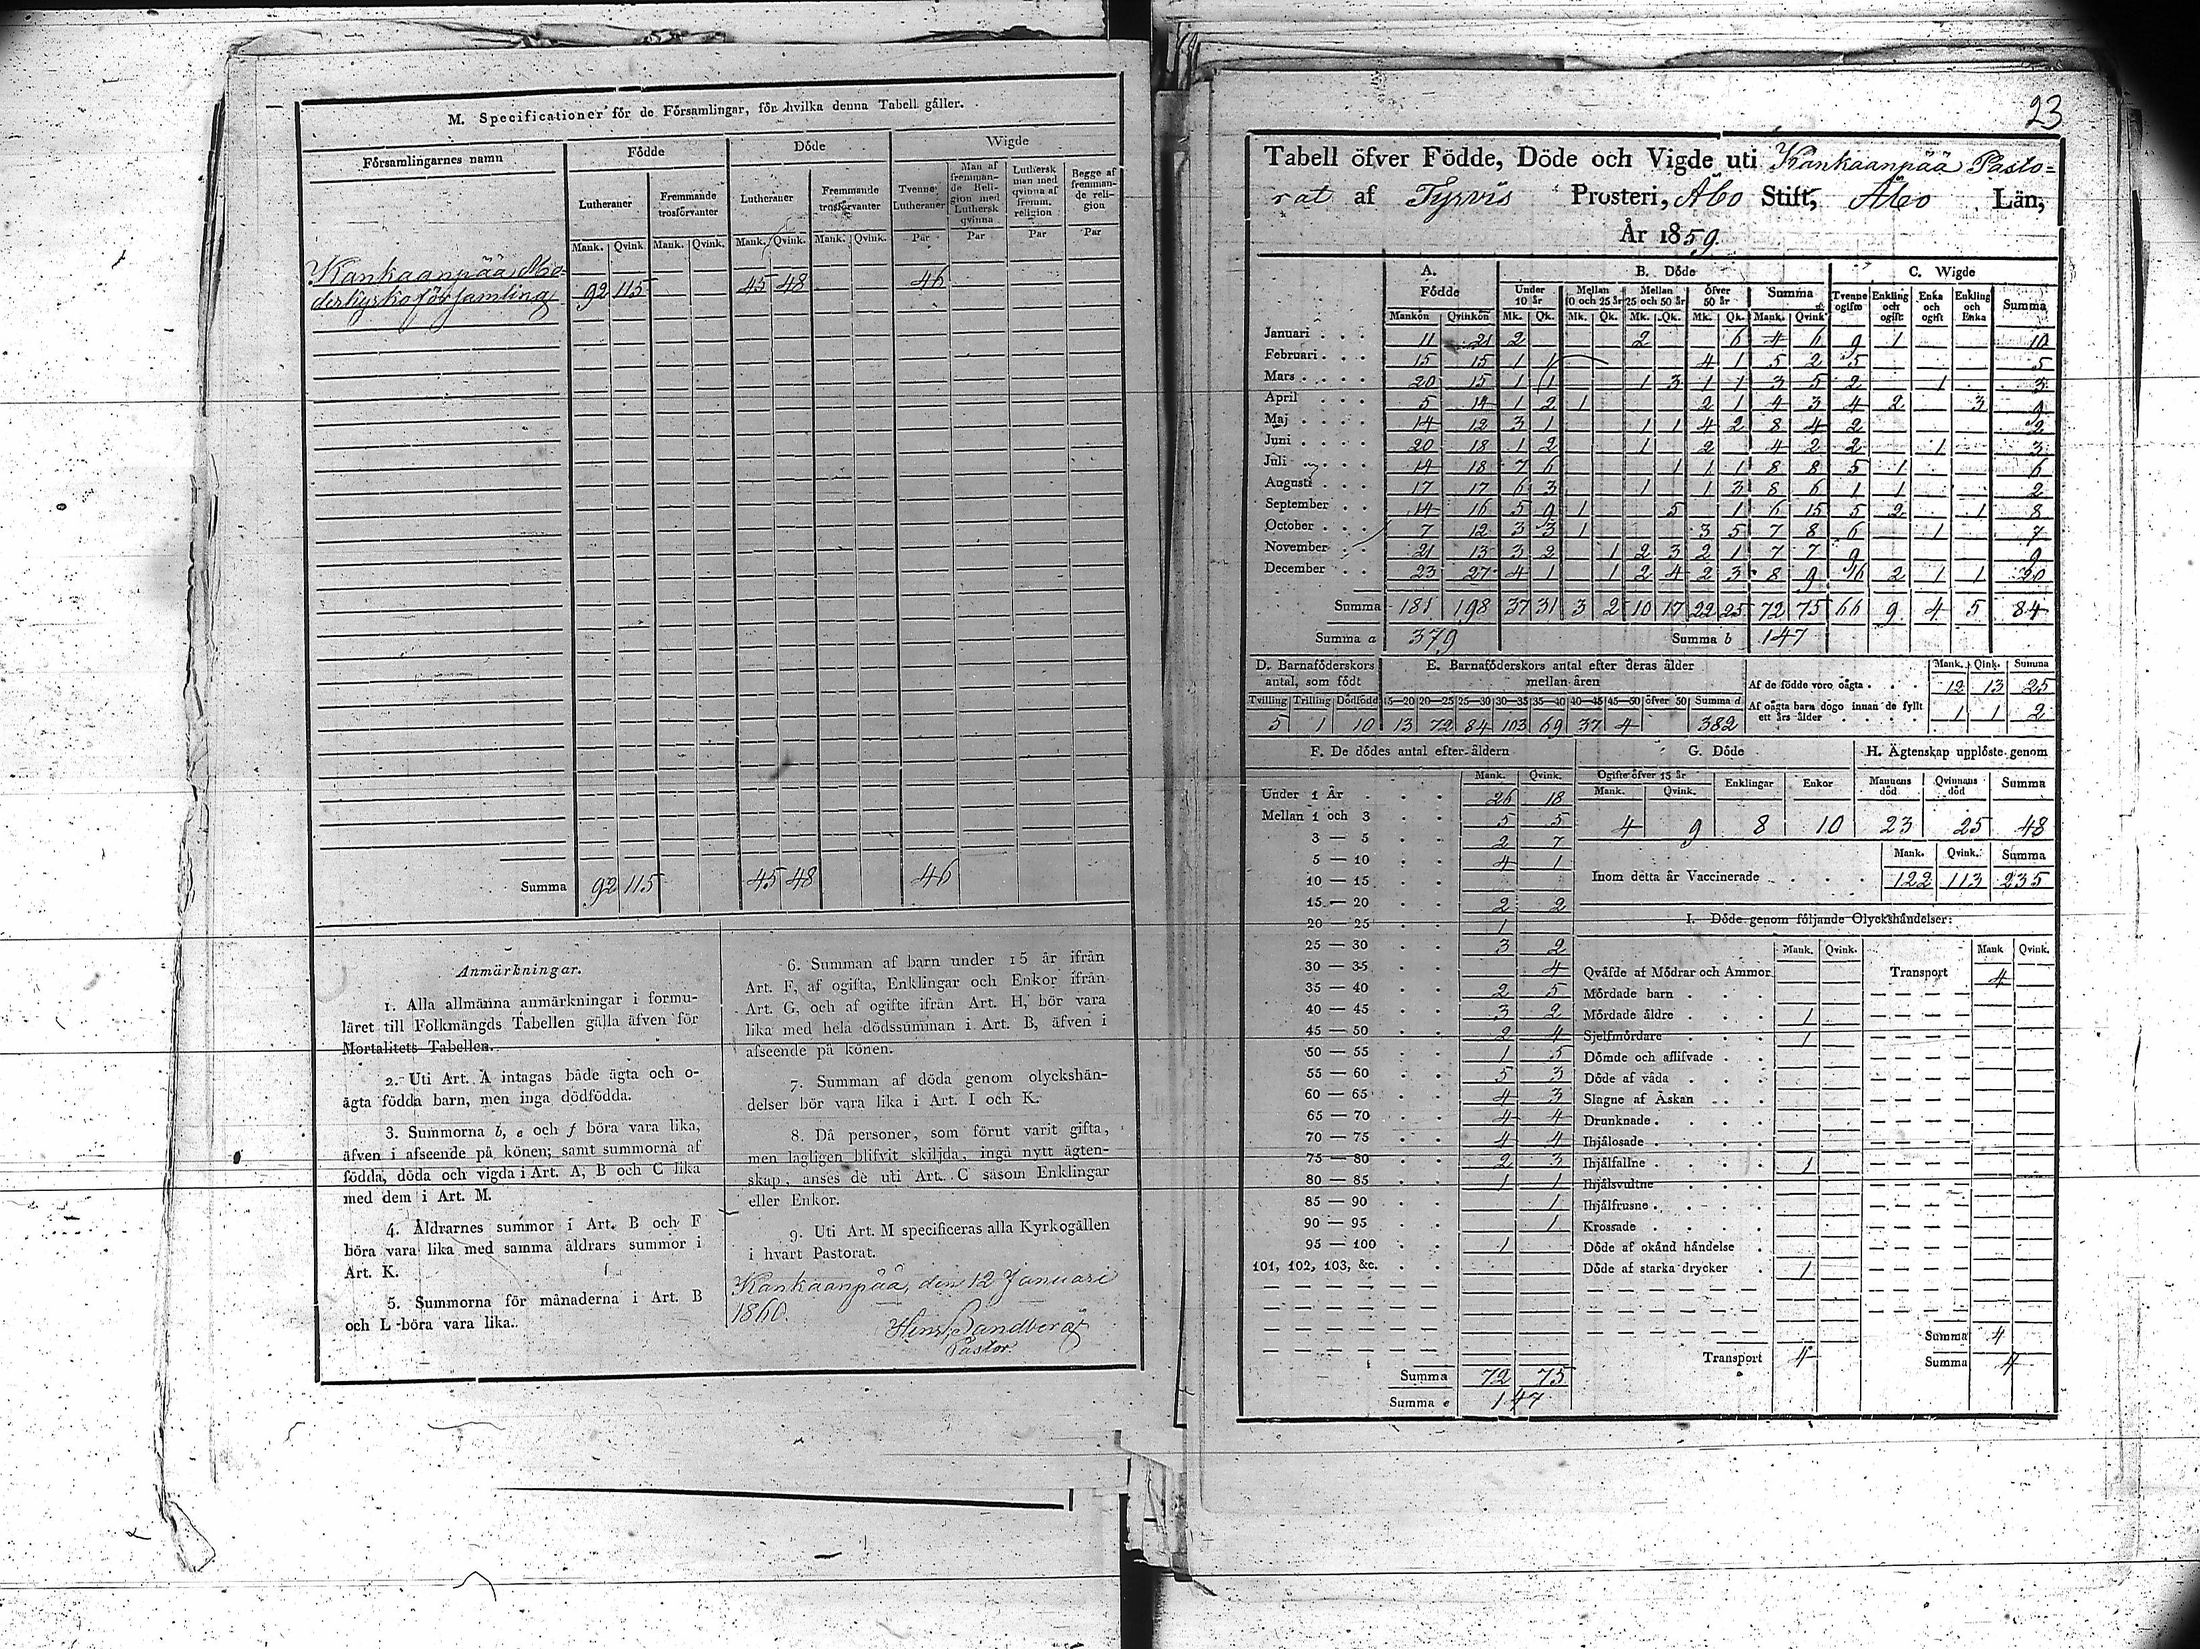 M. Specificationer för de Församlingar, för hvilka denna Tabell gäller.
Församlingarnes namn Födde Döde Wigde
Lutheraner Fremmande trosförvanter Lutheraner Fremmande trosförvanter Tvenne Lutheraner Man af fremmande Religion med Luthersk qvinna Luthersk man med qvinna af fremm. religion Begge af fremmande religion
Mank. Qvink. Mank. Qvink. Mank. Qvink. Mank. Qvink. Par Par Par Par
Kankaanpää Mo-
derkyrko församling 92 115 45 48 46
Summa 92 115 45 48 46
Anmärkningar.
1. Alla allmänna anmärkningar i formu-
läret till Folkmängds Tabellen gälla äfven för
Mortalitets Tabellen.
2. Uti Art. A intagas både ägta och o-
ägta födda barn, men inga dödfödda.
3. Summorna b, e och f böra vara lika,
äfven i afseende på könen; samt summorna af
födda, döda och vigda i Art. A, B och C lika
med dem i Art. M.
4. Åldrarnes summor i Art. B och F
böra vara lika med samma åldrars summor i
Art. K.
5. Summorna för månaderna i Art. B
och L böra vara lika.
6. Summan af barn under 15 år ifrån
Art. F, af ogifta, Enklingar och Enkor ifrån
Art. G, och af ogifte ifrån Art. H, bör vara
lika med hela dödssumman i Art. B, äfven i
afseende på könen.
7. Summan af döda genom olyckshän-
delser bör vara lika i Art. I och K.
8. Då personer, som förut varit gifta,
men lagligen blifvit skiljda, ingå nytt ägten-
skap, anses de uti Art. C såsom Enklingar
eller Enkor.
9. Uti Art. M specificeras alla Kyrkogällen
i hvart Pastorat.
Kankaanpää, den 12 Januari
1860.
Sandberg
Pastor.
23
Tabell öfver Födde, Döde och Vigde uti Kankaanpää Pasto=
rat af Tyrvis Prosteri, Åbo Stift, Åbo Län,
År 1859.
A. Födde B. Döde C. Wigde
Under 10 år Mellan 10 och 25 år Mellan 25 och 50 år Öfver 50 år Summa Tvenne ogifte Enkling och ogift Enka och ogift Enkling och Enka Summa
Mankön Qvinkön Mk. Qk. Mk. Qk. Mk. Qk. Mk. Qk. Mank. Qvink
Januari 11 21 2 2 6 4 6 9 1 10
Februari 15 15 1 1 4 1 5 2 5 5
Mars 20 15 1 1 1 3 1 1 3 5 2 1 3
April 5 14 1 2 1 2 1 4 3 4 2 3 9
Maj 14 12 3 1 1 1 4 2 8 4 2 2
Juni 20 18 1 2 1 2 4 2 2 1 3
Juli 14 18 7 6 1 1 1 8 8 5 1 6
Augusti 17 17 6 3 1 1 3 8 6 1 1 2
September 14 16 5 9 1 5 1 6 15 5 2 1 8
October 7 12 3 3 1 3 5 7 8 6 1 7
November 21 13 3 2 1 2 3 2 1 7 7 9 9
December 23 27 4 1 1 2 4 2 3 8 9 16 2 1 1 20
Summa 181 198 37 31 3 2 10 17 22 25 72 75 66 9 4 5 84
Summa a 379 Summa b 147
D. Barnaföderskors antal, som födt
Tvilling Trilling Dödfödd
5 1 10
E. Barnaföderskors antal efter deras ålder
mellan åren
15—20 20—25 25—30 30—35 35—40 40—45 45—50 öfver 50 Summa d
13 72 84 103 69 37 4 382
Mank. Qink. Summa
Af de födde voro oägta 12 13 25
Af oägta barn dogo innan de fyllt
ett års ålder 1 1 2
F. De dödes antal efter åldern
Mank. Qvink.
Under 1 År 26 18
Mellan 1 och 3 5 5
3 — 5 2 7
5 — 10 4 1
10 — 15
15 — 20 2 2
20 — 25 1
25 — 30 3 2
30 — 35 4
35 — 40 2 5
40 — 45 3 2
45 — 50 2 4
50 — 55 1 5
55 — 60 5 3
60 — 65 4 3
65 — 70 4 4
70 — 75 4 4
75 — 80 2 3
80 — 85 1 1
85 — 90 1
90 — 95 1
95 — 100 1
101, 102, 103, &c.
Summa 72 75
Summa e 147
G. Döde
Ogifte öfver 15 år Enklingar Enkor
Mank. Qvink.
4 9 8 10
H. Ägtenskap upplöste genom
Mannens död Qvinnans död Summa
23 25 48
Mank. Qvink. Summa
Inom detta år Vaccinerade 122 113 235
I. Döde genom följande Olyckshändelser:
Mank. Qvink. Mank Qvink.
Qväfde af Mödrar och Ammor Transport 4
Mördade barn
Mördade äldre 1
Sjelfmördare 1
Dömde och aflifvade
Döde af våda
Slagne af Åskan
Drunknade
Ihjälosade
Ihjälfallne 1
Ihjälsvultne
Ihjälfrusne
Krossade
Döde af okänd händelse
Döde af starka drycker 1
Summa 4
Transport 4 Summa 4